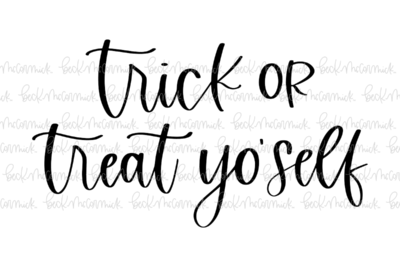 trick OR
treat yo'self